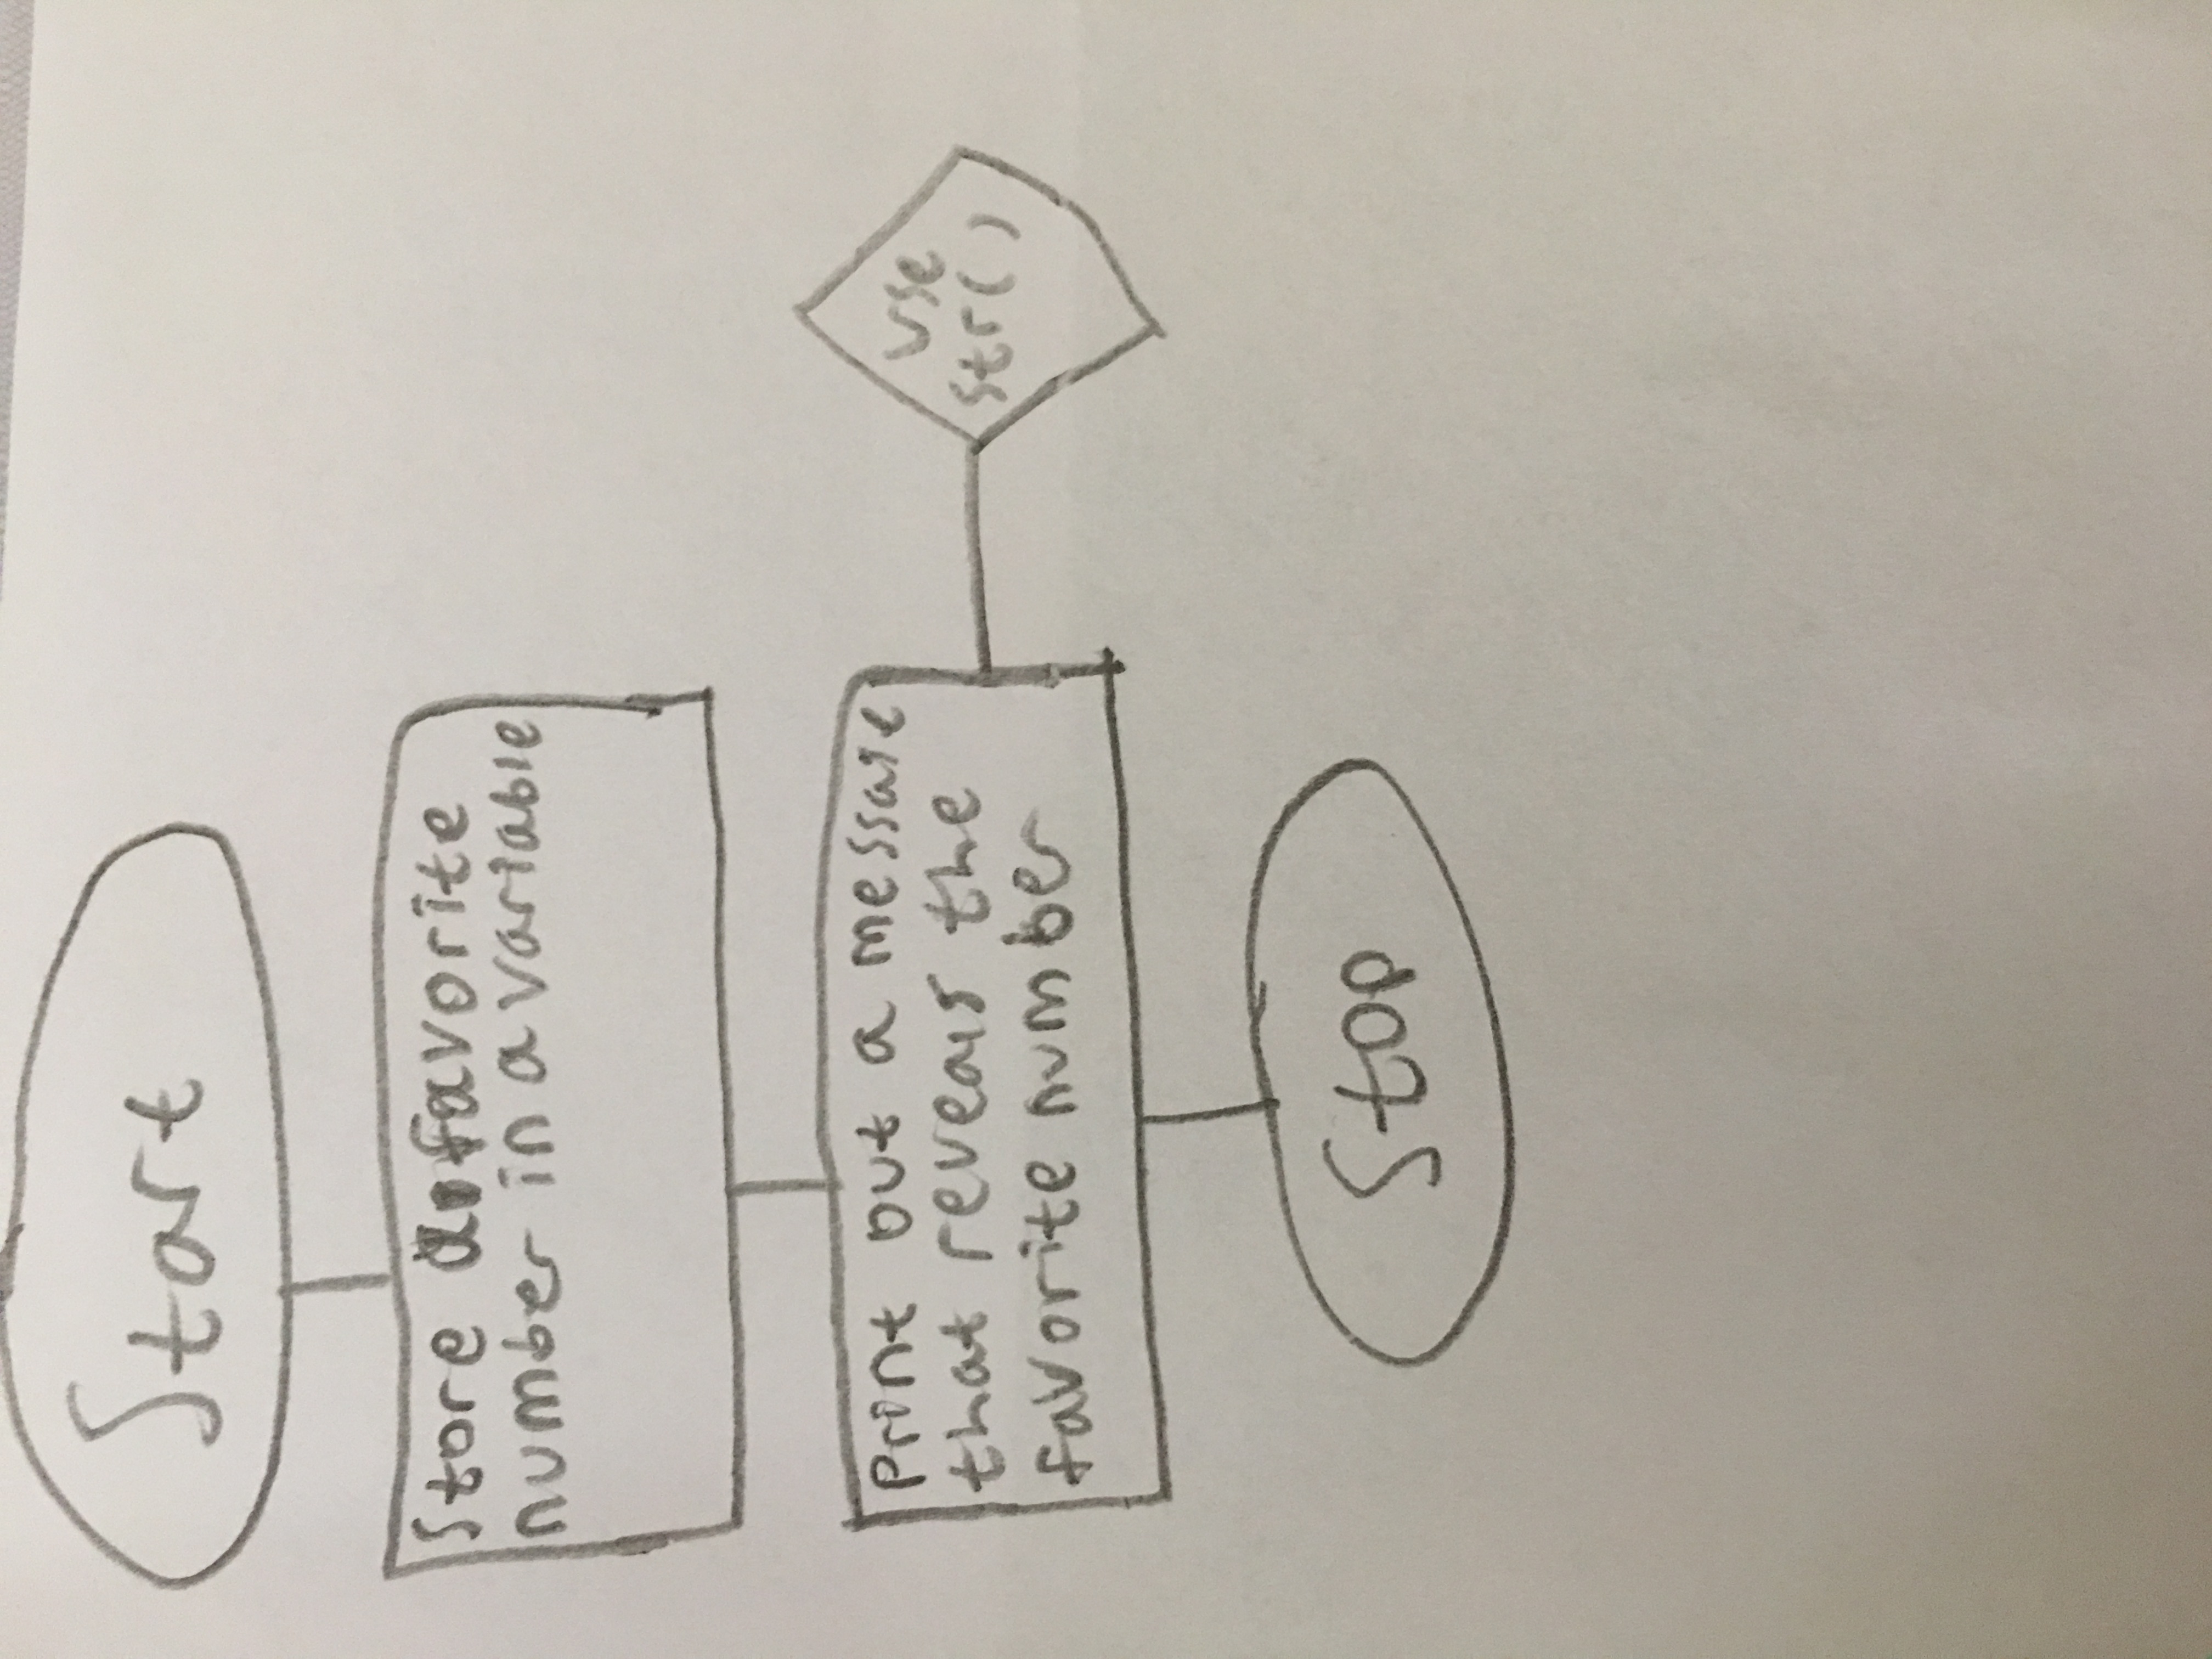 Start
Store a favorite
number in a variable
Print out a message
that reveals the
favorite number
use
str()
Stop